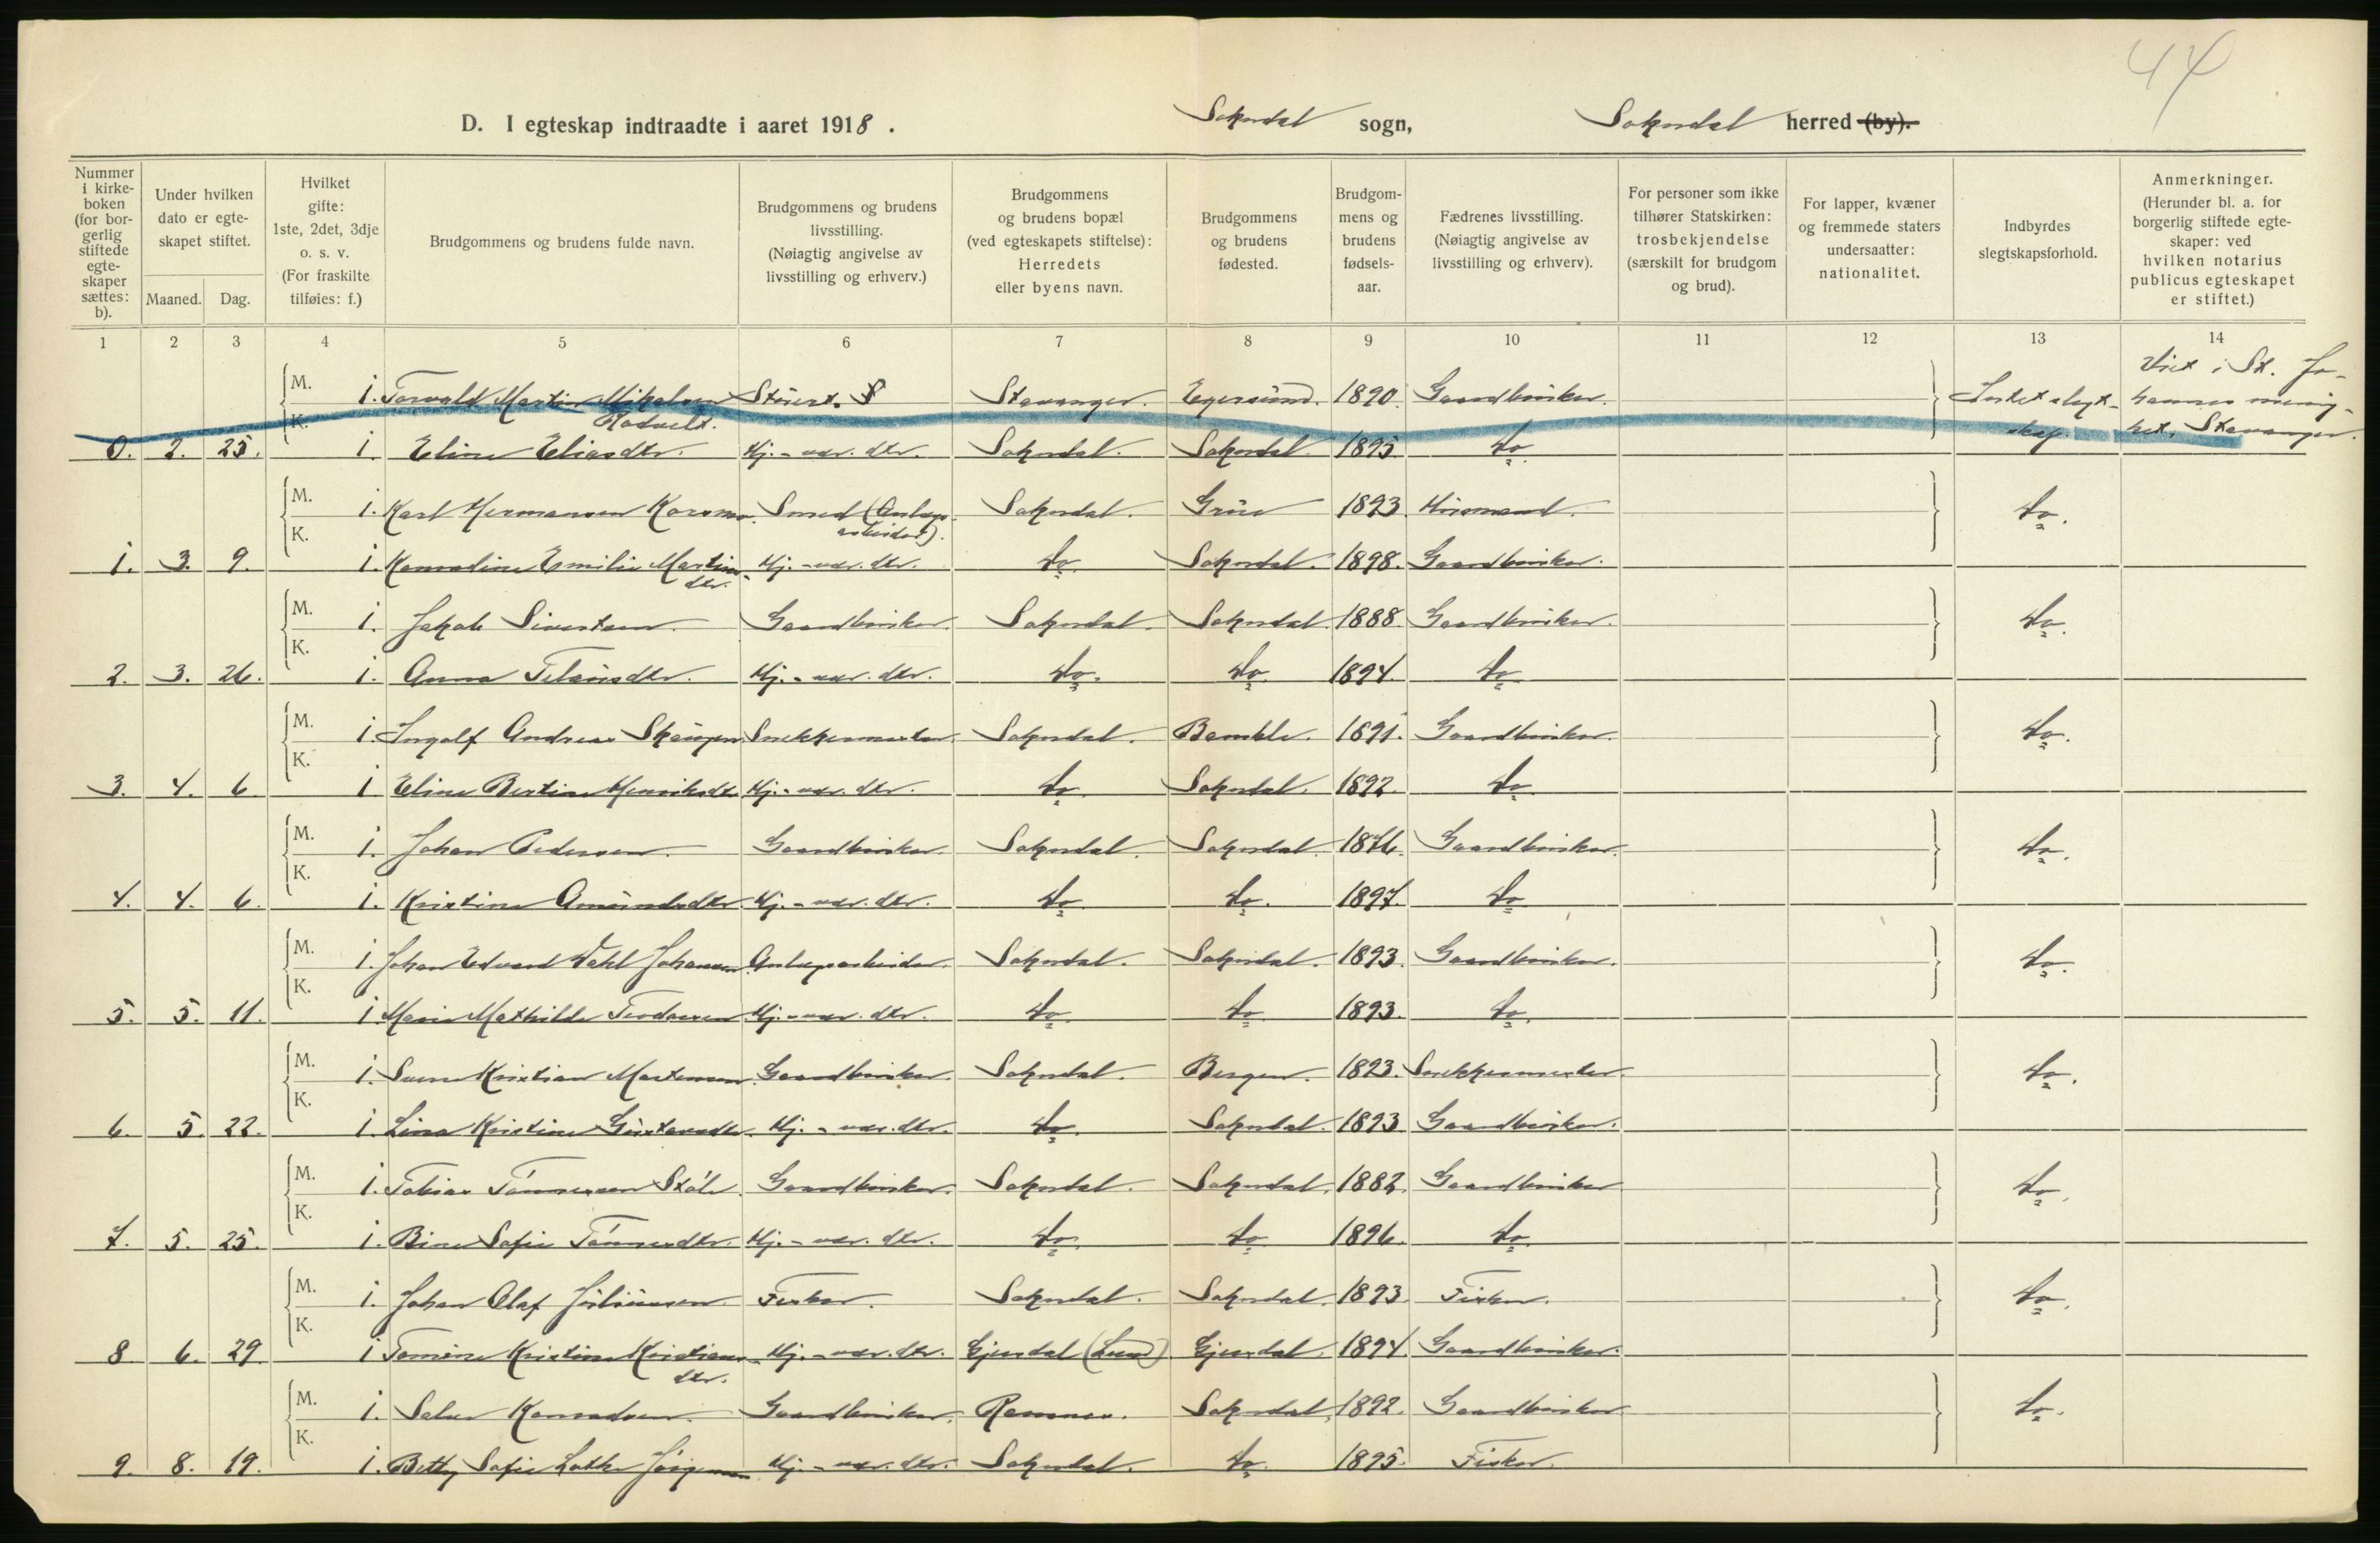 44
D. I egteskap indtraadte i aaret 1918. Sokndal sogn, Sokndal herred (by).
Nummer i kirkeboken (for borgerlig stiftede egteskaper sættes: b).
Under hvilken dato er egteskapet stiftet.
Maaned. Dag.
Hvilket gifte: 1ste, 2det, 3dje o. s. v. (For fraskilte tilføies: f.)
Brudgommens og brudens fulde navn.
Brudgommens og brudens livsstilling. (Nøiagtig angivelse av livsstilling og erhverv.)
Brudgommens og brudens bopæl (ved egteskapets stiftelse): Herredets eller byens navn.
Brudgommens og brudens fødested.
Brudgommens og brudens fødselsaar.
Fædrenes livsstilling. (Nøiagtig angivelse av livsstilling og erhverv).
For personer som ikke tilhører Statskirken: trosbekjendelse (særskilt for brudgom og brud).
For lapper, kvæner og fremmede staters undersaatter: nationalitet.
Indbyrdes slegtskapsforhold.
Anmerkninger. (Herunder bl. a. for borgerlig stiftede egteskaper: ved hvilken notarius publicus egteskapet er stiftet.)
1 2 3 4 5 6 7 8 9 10 11 12 13 14
M. 1. Torvald Martin Mikalsen Stavanger. Egersund. 1890. Gaardbruker. Intet slegt- Viet i St. Jo-
hannes menig-
K. skap. het, Stavanger.
0. 2. 25. 1. Eline Eliasdtr. Hj.-vær. dtr. Sokndal. Sokndal 1895 do
M. 1. Karl Hermansen Korsmo. Smed (Anlægs- Sokndal. Grue 1893. Husmand. do.
K. arbeider).
1. 3. 9. 1. Konradine Emilie Martins- Hj.-vær. dtr. do Sokndal. 1898. Gaardbruker.
dtr.
M. 1. Jakob Sivertsen. Gaardbruker. Sokndal. Sokndal. 1888. Gaardbruker. do.
K.
2. 3. 26. 1. Anna Hj.-vær. dtr. do. do. 1894. do
M. 1. Ingolf Andreas Skaugen Snekkermester. Sokndal. Bamble. 1891. Gaardbruker. do.
K.
3. 4. 6 1 Eline Bertine Henriksdtr Hj.-vær. dtr. do. Sokndal. 1892. do
M. 1. Johan Pedersen. Gaardbruker. Sokndal. Sokndal. 1876. Gaardbruker. do.
K.
4. 4. 6. 1. Kristine Amundsdtr. Hj.-vær. dtr. do do. 1897. do
M. 1. Johan Edvard Dahl Johansen Anlægsarbeider. Sokndal. Sokndal. 1893. Gaardbruker. do.
K.
5. 5. 11. 1. Marie Mathilde Teodorsen Hj.-vær. dtr. do. do 1893. do.
M. 1. Kristian Mortensen Gaardbruker. Sokndal. Bergen. 1893. Snekkermester. do.
K.
6. 5. 22. 1. Lina Kristine Gustavsdtr. Hj.-vær. dtr. do. Sokndal. 1893 Gaardbruker.
M. 1. Tobias Tønnessen Støle. Gaardbruker. Sokndal. Sokndal. 1882. Gaardbruker do.
K.
7. 5. 25. 1. Bine Sofie Tønnesdtr. Hj.-vær. dtr. do. do 1896. do.
M. 1. Johan Olaf Juliussen. Fisker. Sokndal. Sokndal. 1893. Fisker. do.
K.
8. 6. 29. 1 Tomine Kristine Kristians- Hj.-vær. dtr. Gjesdal (Lund) Gjesdal. 1894 Gaardbruker.
dtr.
M. 1. Konradsen. Gaardbruker. Sokndal. 1892. Gaardbruker do.
K.
9. 8. 19. 1. Betty Sofie Hj.-vær. dtr. Sokndal. do. 1895. Fisker.